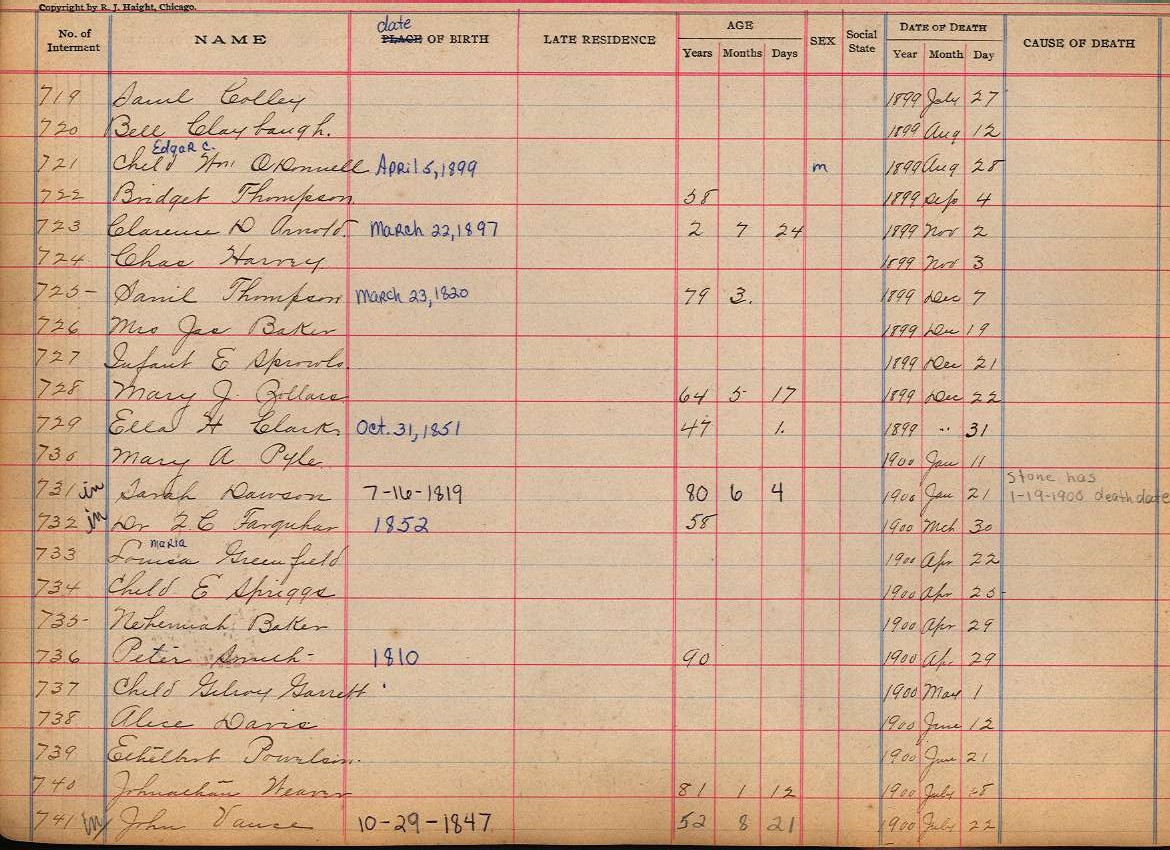 Copyright by R. J. Haight, Chicago.
No. of Interment NAME date PLACE OF BIRTH LATE RESIDENCE AGE Years Months Days SEX Social State DATE OF DEATH Year Month Day CAUSE OF DEATH
719 Saml Colley 1899 July 27
720 Bell Claybaugh. 1899 Aug 12
Edgar C.
721 Child Wm O'Donnell April 5, 1899 m 1899 Aug 28
722 Bridget Thompson 58 1899 Sep 4
723 Clarence D Arnold. March 22, 1897 2 7 24 1899 Nov 2
724 Chas Harvey 1899 Nov 3
725- Saml Thompson March 23, 1820 79 3. 1899 Dec 7
726 Mrs Jas Baker 1899 Dec 19
727 Infant E Sprowls. 1899 Dec 21
728 Mary J. Bollars 64 5 17 1899 Dec 22
729 Ella H Clark Oct. 31, 1851 47 1. 1899 " 31
730 Mary A Pyle 1900 Jan 11
731 in Sarah Dawson 7-16-1819 80 6 4 1900 Jan 21 Stone has 1-19-1900 death date
732 in Dr Farquhar 1852 58 1900 Mch 30
maria
733 Louisa Greenfield 1900 Apr 22
734 Child E Spriggs 1900 Apr 25-
735- Nehemiah Baker 1900 Apr 29
736 Peter 1810 90 1900 Ap. 29
737 Child Gilroy Garrett 1900 May 1
738 Alice Davis 1900 June 12
739 Ethelbert Powelson. 1900 June 21
740 Johnathan Weaver 81 1 12 1900 July
741 in John Vance 10-29-1847 52 8 21 1900 July 22